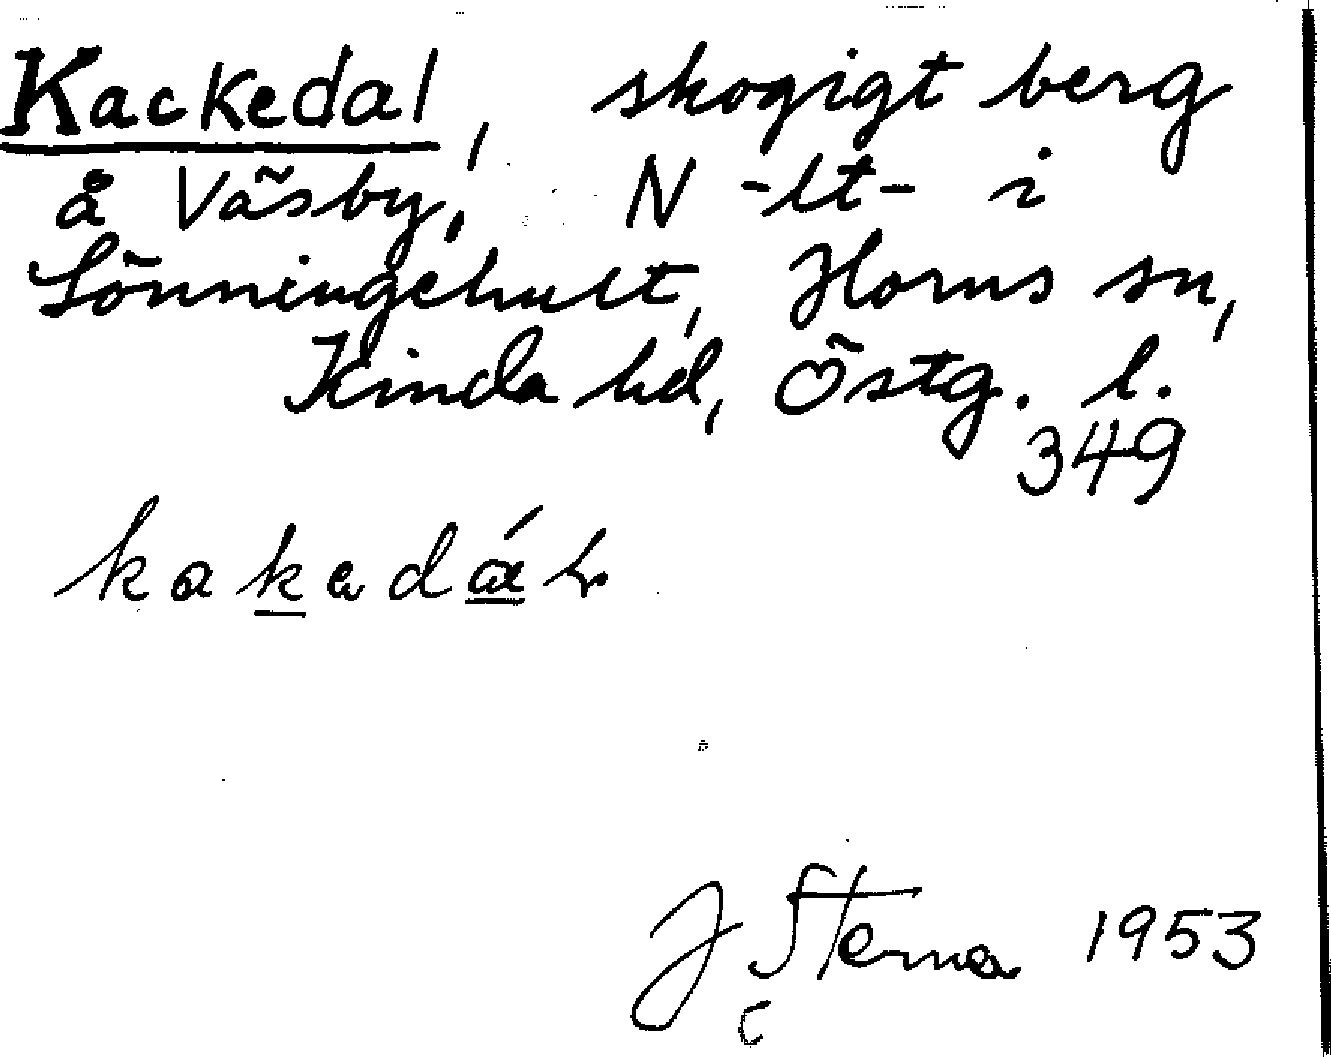 Kackedal, skogigt berg
å Väsby, N -lt- i
Lönningehult, Horns sn,
Kinda hd, Östg. l.
349
kakadáL
J Sterna 1953